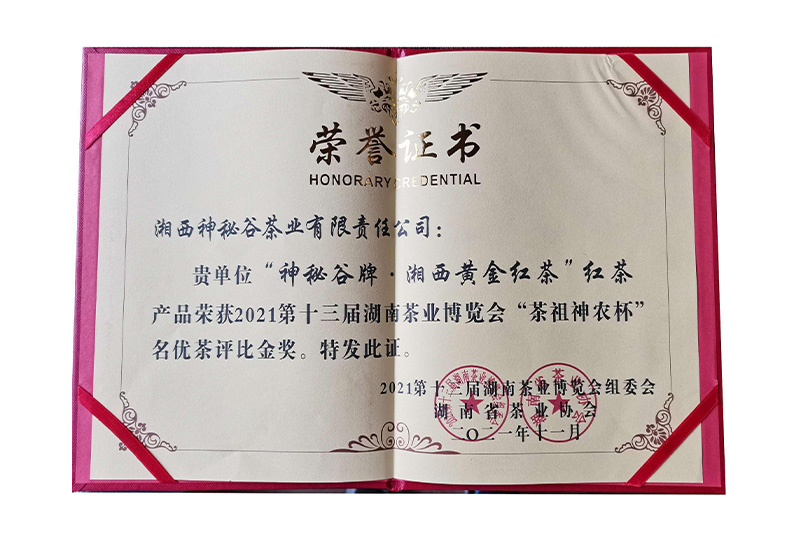 荣誉证书
HONORARY CREDENTIAL
湘西神秘谷茶业有限责任公司：
贵单位“神秘谷牌·湘西黄金红茶”红茶
产品荣获2021第十三届湖南茶业博览会“茶祖神农杯”
名优茶评比金奖。特发此证。
2021第十三届湖南茶业博览会组委会
湖南省茶业协会
二〇二一年十一月